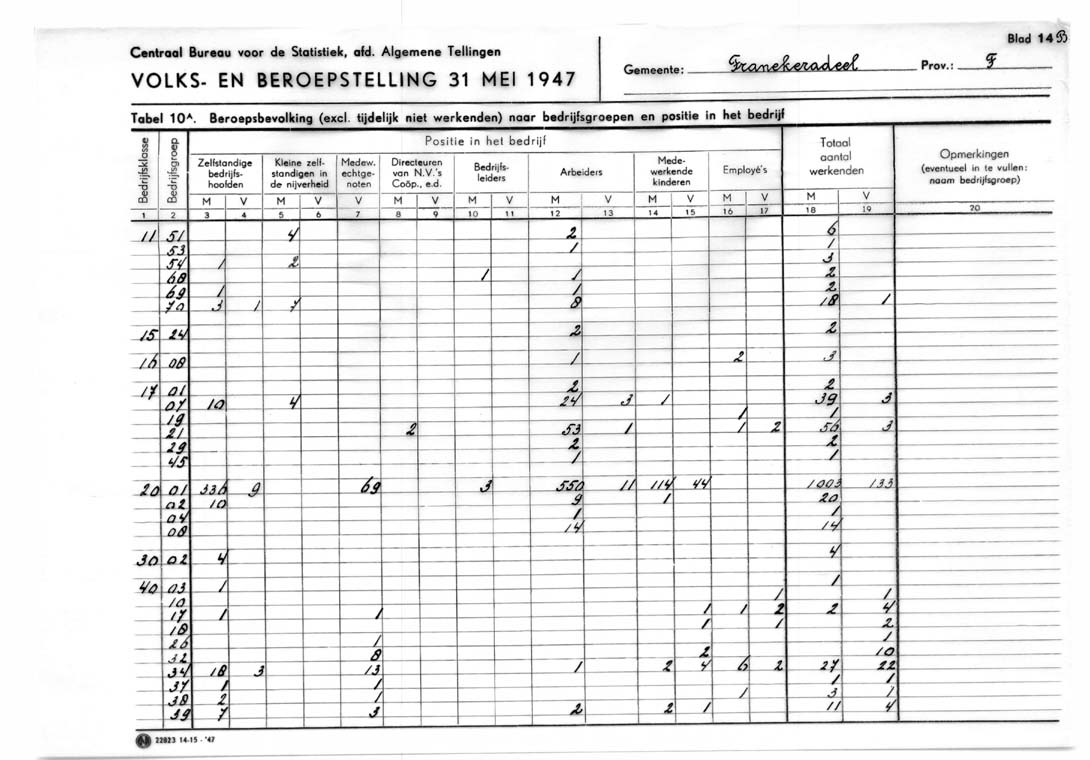 Blad 14 B
Centraal Bureau voor de Statistiek, afd. Algemene Tellingen
VOLKS- EN BEROEPSTELLING 31 MEI 1947
Gemeente: Franekeradeel Prov.: F
Tabel 10A. Beroepsbevolking (excl. tijdelijk niet werkenden) naar bedrijfsgroepen en positie in het bedrijf
Bedrijfsklasse
Bedrijfsgroep
Positie in het bedrijf
Zelfstandige bedrijfs-hoofden
Kleine zelf-standigen in de nijverheid
Medew. echtge-noten
Directeuren van N.V.'s Coöp., e.d.
Bedrijfs-leiders
Arbeiders
Mede-werkende kinderen
Employé's
Totaal aantal werkenden
Opmerkingen (eventueel in te vullen: naam bedrijfsgroep)
M V M V V M V M V M V M V M V M V
1 2 3 4 5 6 7 8 9 10 11 12 13 14 15 16 17 18 19 20
11 51 4 2 6
53 1 1
54 1 2 3
68 1 1 2
69 1 1 2
70 3 1 7 8 18 1
15 24 2 2
16 08 1 2 3
17 01 2 2
07 10 4 24 3 1 39 3
19 1 1
21 2 53 1 1 2 56 3
29 2 2
45 1 1
20 01 336 9 69 3 550 11 114 44 1003 133
02 10 9 1 20
04 1 1
08 14 14
30 02 4 4
40 03 1 1
10 1 1
17 1 1 1 1 2 2 4
18 1 1 2
26 1 1
32 8 2 10
34 18 3 13 1 2 4 6 2 27 22
37 1 1 1 1
38 2 1 1 3 1
39 7 3 2 2 1 11 4
N 22823 14-15 - '47